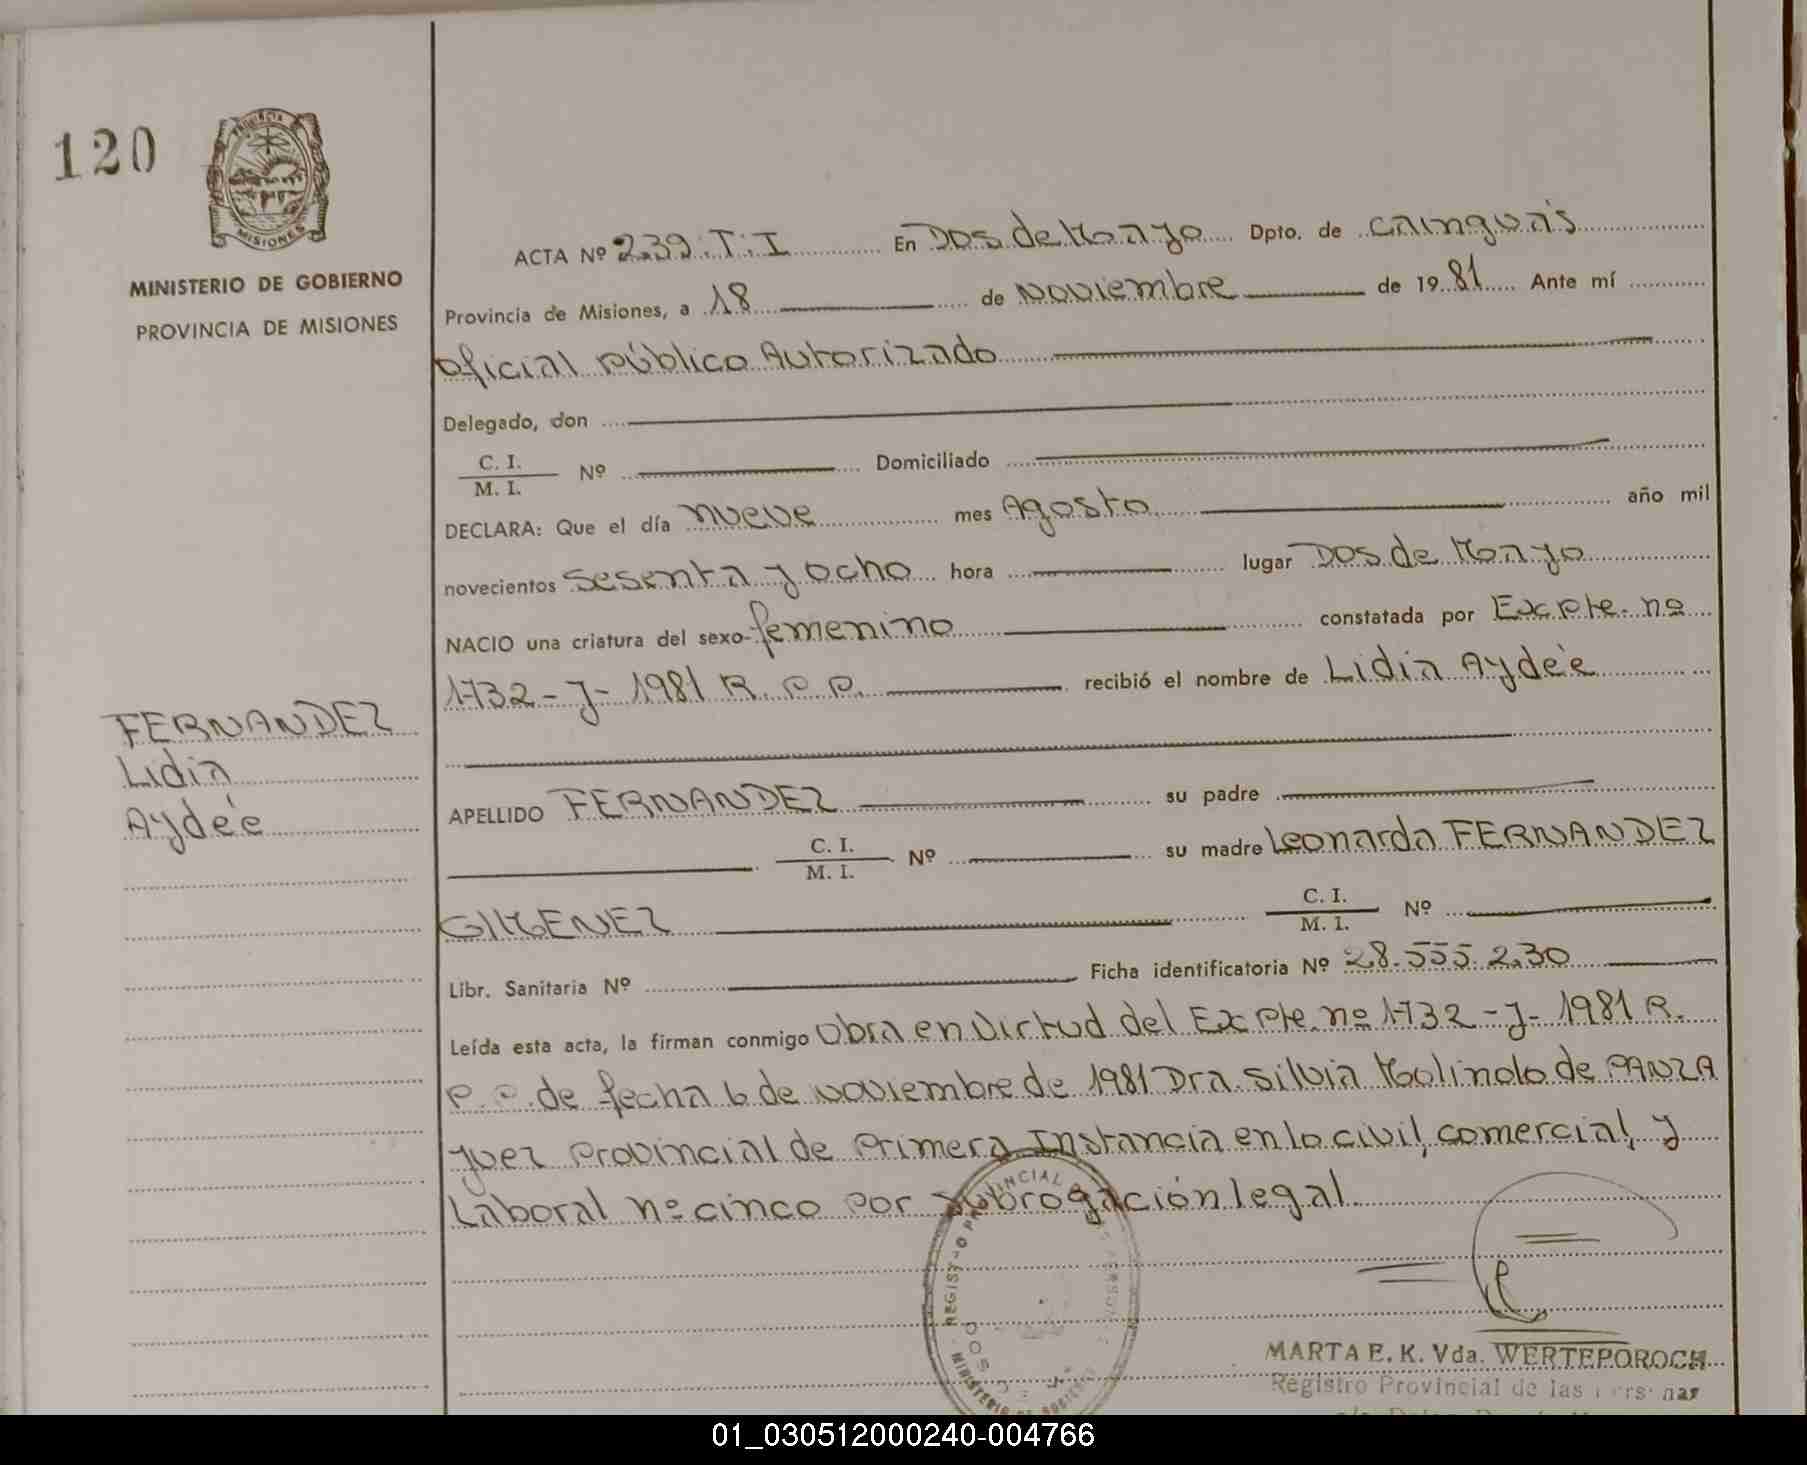 120
PROVINCIA
MISIONES
MINISTERIO DE GOBIERNO
PROVINCIA DE MISIONES
ACTA Nº 239. T. I En Dos de Mayo Dpto. de Cainguás
Provincia de Misiones, a 18 de Noviembre de 1981 Ante mí
Oficial Público Autorizado
Delegado, don
C. I.
M. I. Nº Domiciliado
DECLARA: Que el día nueve mes Agosto año mil
novecientos sesenta y ocho hora lugar Dos de Mayo
NACIO una criatura del sexo femenino constatada por Expte. nº
1732-J-1981 R. P. P. recibió el nombre de Lidia Aydée
FERNANDEZ
Lidia
Aydée
APELLIDO FERNANDEZ su padre
C. I.
M. I. Nº su madre Leonarda FERNANDEZ
GIMENEZ C. I.
M. I. Nº
Libr. Sanitaria Nº Ficha identificatoria Nº 28.555.230
Leída esta acta, la firman conmigo Obra en Virtud del Expte. nº 1732-J-1981 R.
P. P. de fecha 6 de Noviembre de 1981 Dra. Silvia Molinolo de PANZA
Juez Provincial de Primera Instancia en lo civil, comercial, y
Laboral nº cinco por subrogación legal.
MARTA E. K. Vda. WERTEPOROCH
Registro Provincial de las
01_030512000240-004766